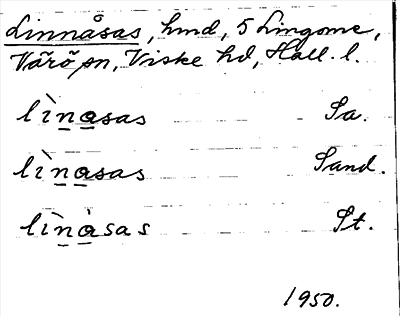 Linnåsas, hmd, 5 Lingome,
Värö sn, Viske hd, Hall. l.
lìn̲a̲sas Sa.
lìn̲a̲sas Sand.
lìn̲à̲sas St.
1950.